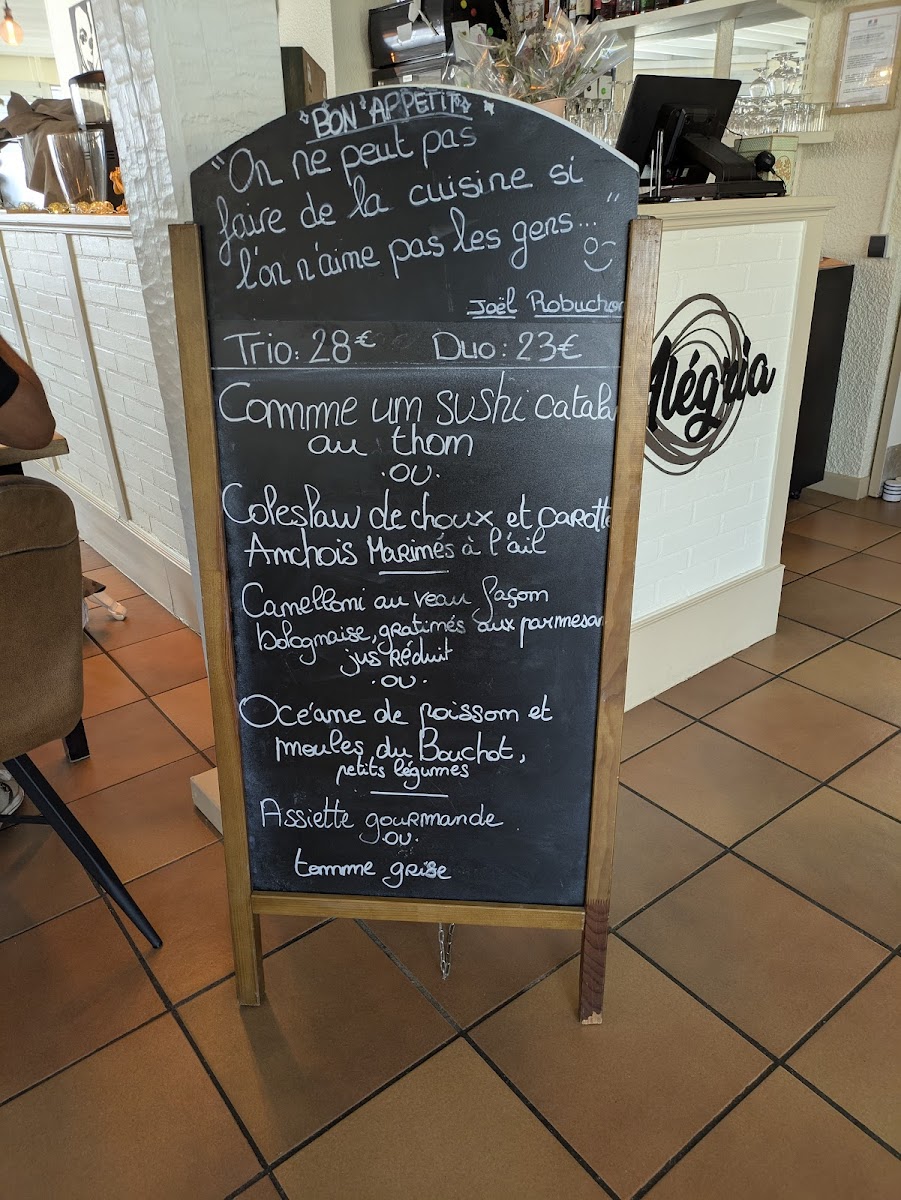 BON APPETIT
"On ne peut pas
faire de la cuisine si
l'on n'aime pas les gens... "
Joël Robuchon
Trio: 28€ Duo: 23€
Comme un sushi catala
au thon
.OU.
Coleslaw de choux et carotte
Anchois Marinés à l'ail
Cannelloni au veau façon
bolognaise, gratinés aux parmesan
jus réduit
.OU.
Océane de poisson et
moules du Bouchot,
petits légumes
Assiette gourmande
.OU.
tomme grise
Alégria